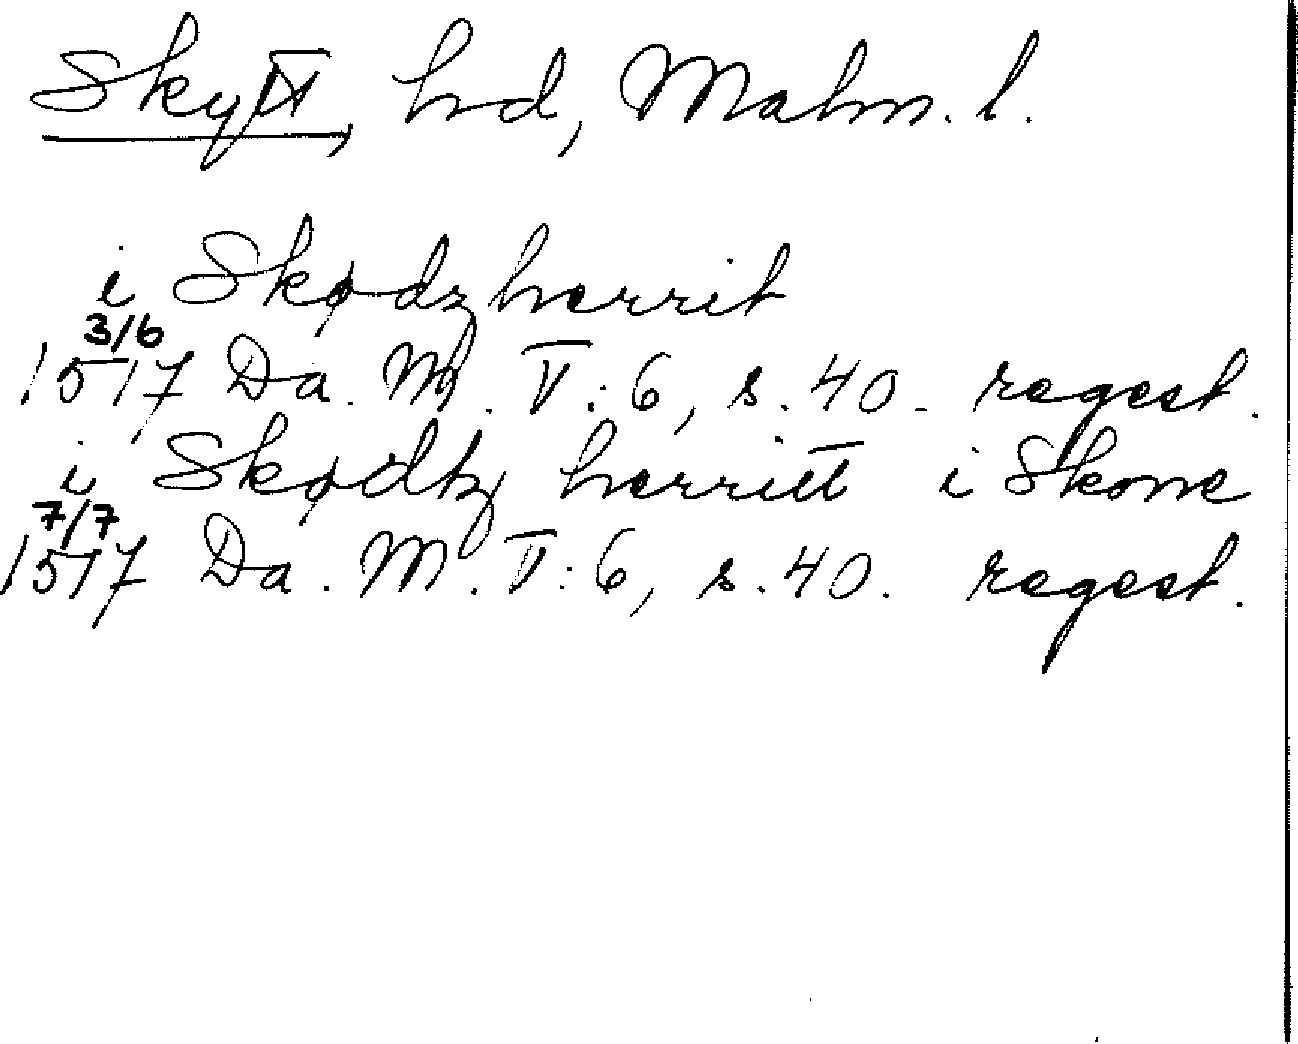 Skytt, hd, Malm. l.
i Skødz herrit
3/6
1517 Da. M. V:6, s. 40. regest.
i Skødtz herritt i Skone
7/7
1517 Da. M. V:6, s. 40. regest.